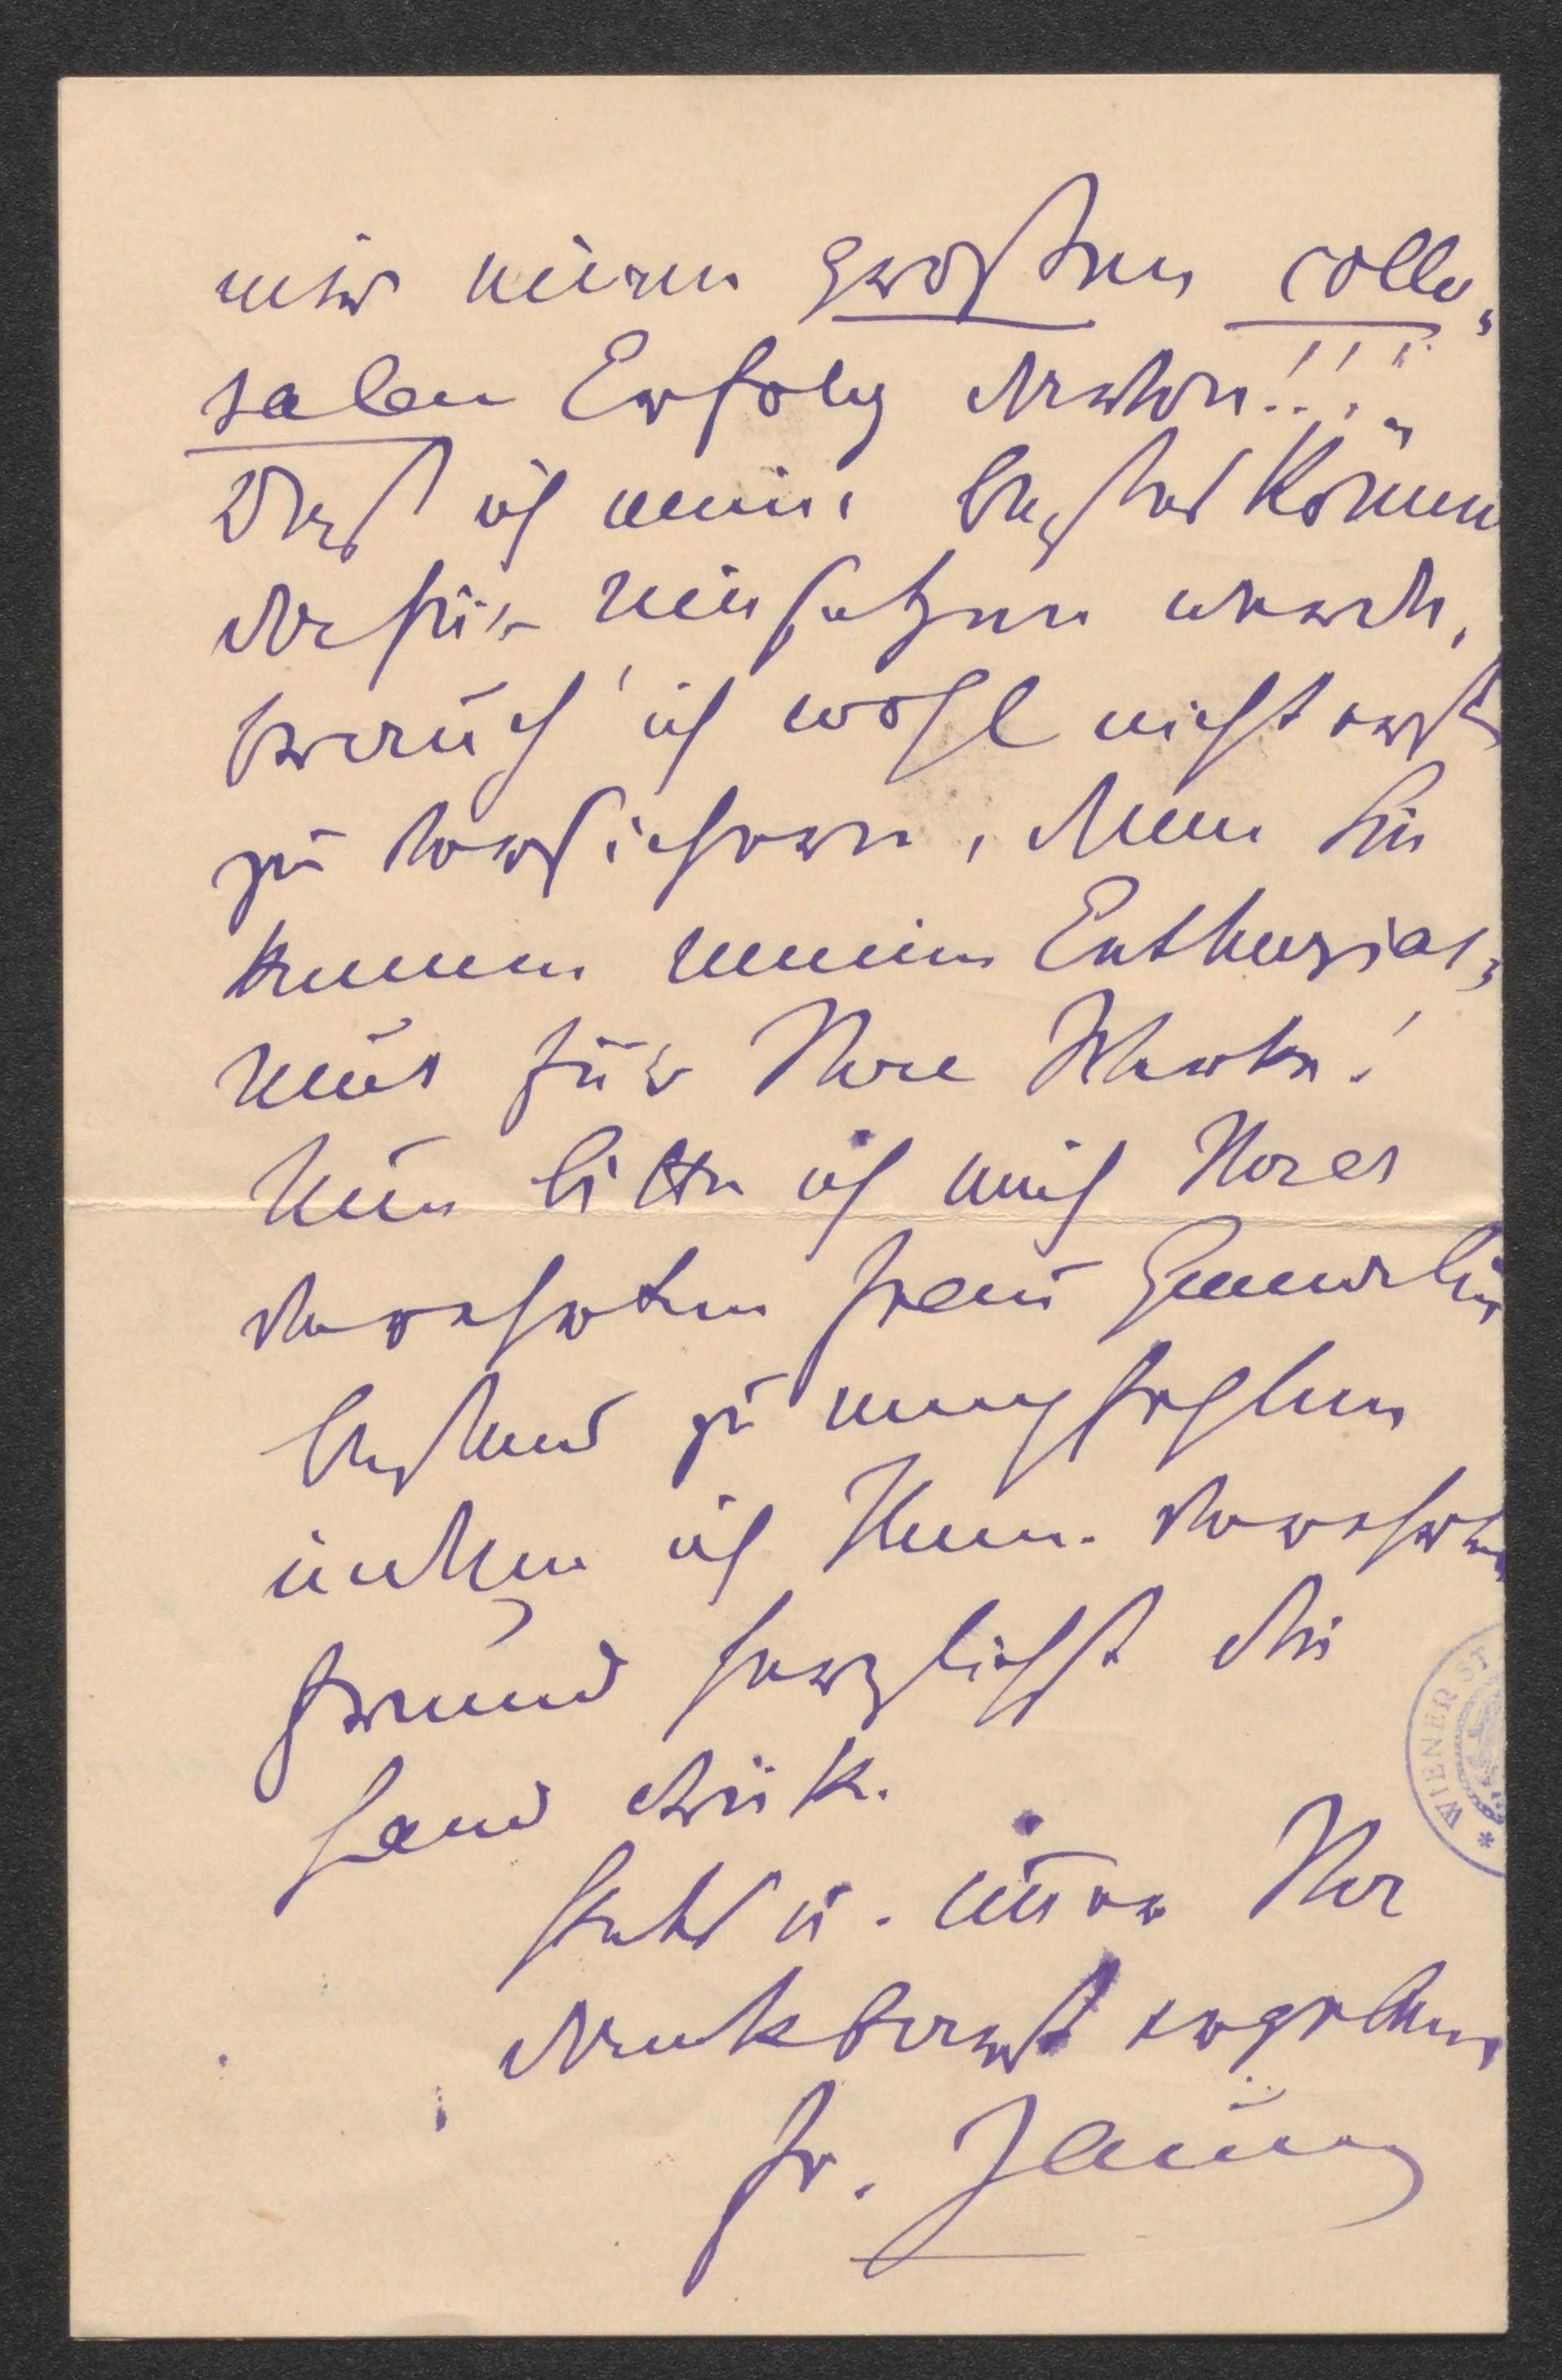 mir einen großen collo-
salen Erfolg davon!!!
Daß ich mein bestes Können
dafür einsetzen werde,
brauch' ich wohl nicht erst
zu versichern, denn Sie
kennen meinen Enthusias-
mus für Ihre Werke!
Nun bitte ich mich Ihrer
verehrten Frau Gemahlin
bestens zu empfehlen
indem ich Ihnen verehrter
Freund herzlichst die
Hand drücke.
Stets u. immer Ihr
dankbarst ergebener
Fr.
WIENER ST